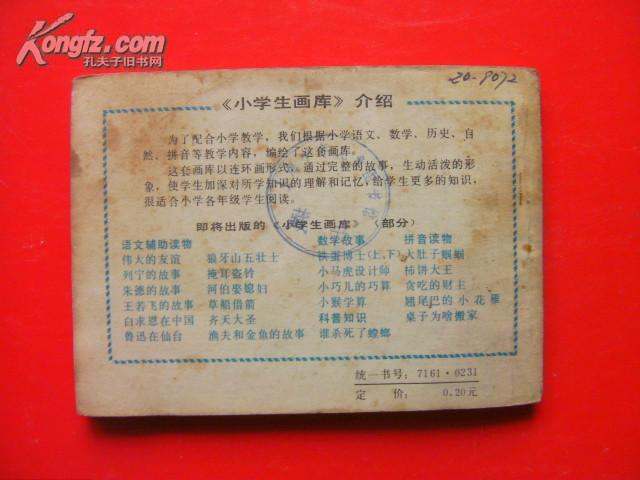 Kongfz.com
孔夫子旧书网
20-9072
《小学生画库》介绍
为了配合小学教学，我们根据小学语文、数学、历史、自
然、拼音等教学内容，编绘了这套画库。
这套画库以连环画形式，通过完整的故事，生动活泼的形
象，使学生加深对所学知识的理解和记忆，给学生更多的知识，
很适合小学各年级学生阅读。
即将出版的《小学生画库》（部分）
语文辅助读物 数学故事 拼音读物
伟大的友谊 狼牙山五壮士 铁蛋博士(上、下) 大肚子蝈蝈
列宁的故事 掩耳盗铃 小马虎设计师 柿饼大王
朱德的故事 河伯娶媳妇 小巧儿的巧算 贪吃的财主
王若飞的故事 草船借箭 小猴学算 翘尾巴的小花雁
白求恩在中国 齐天大圣 科普知识 桌子为啥搬家
鲁迅在仙台 渔夫和金鱼的故事 谁杀死了螳螂
统一书号：7161·0231
定 价： 0.20元